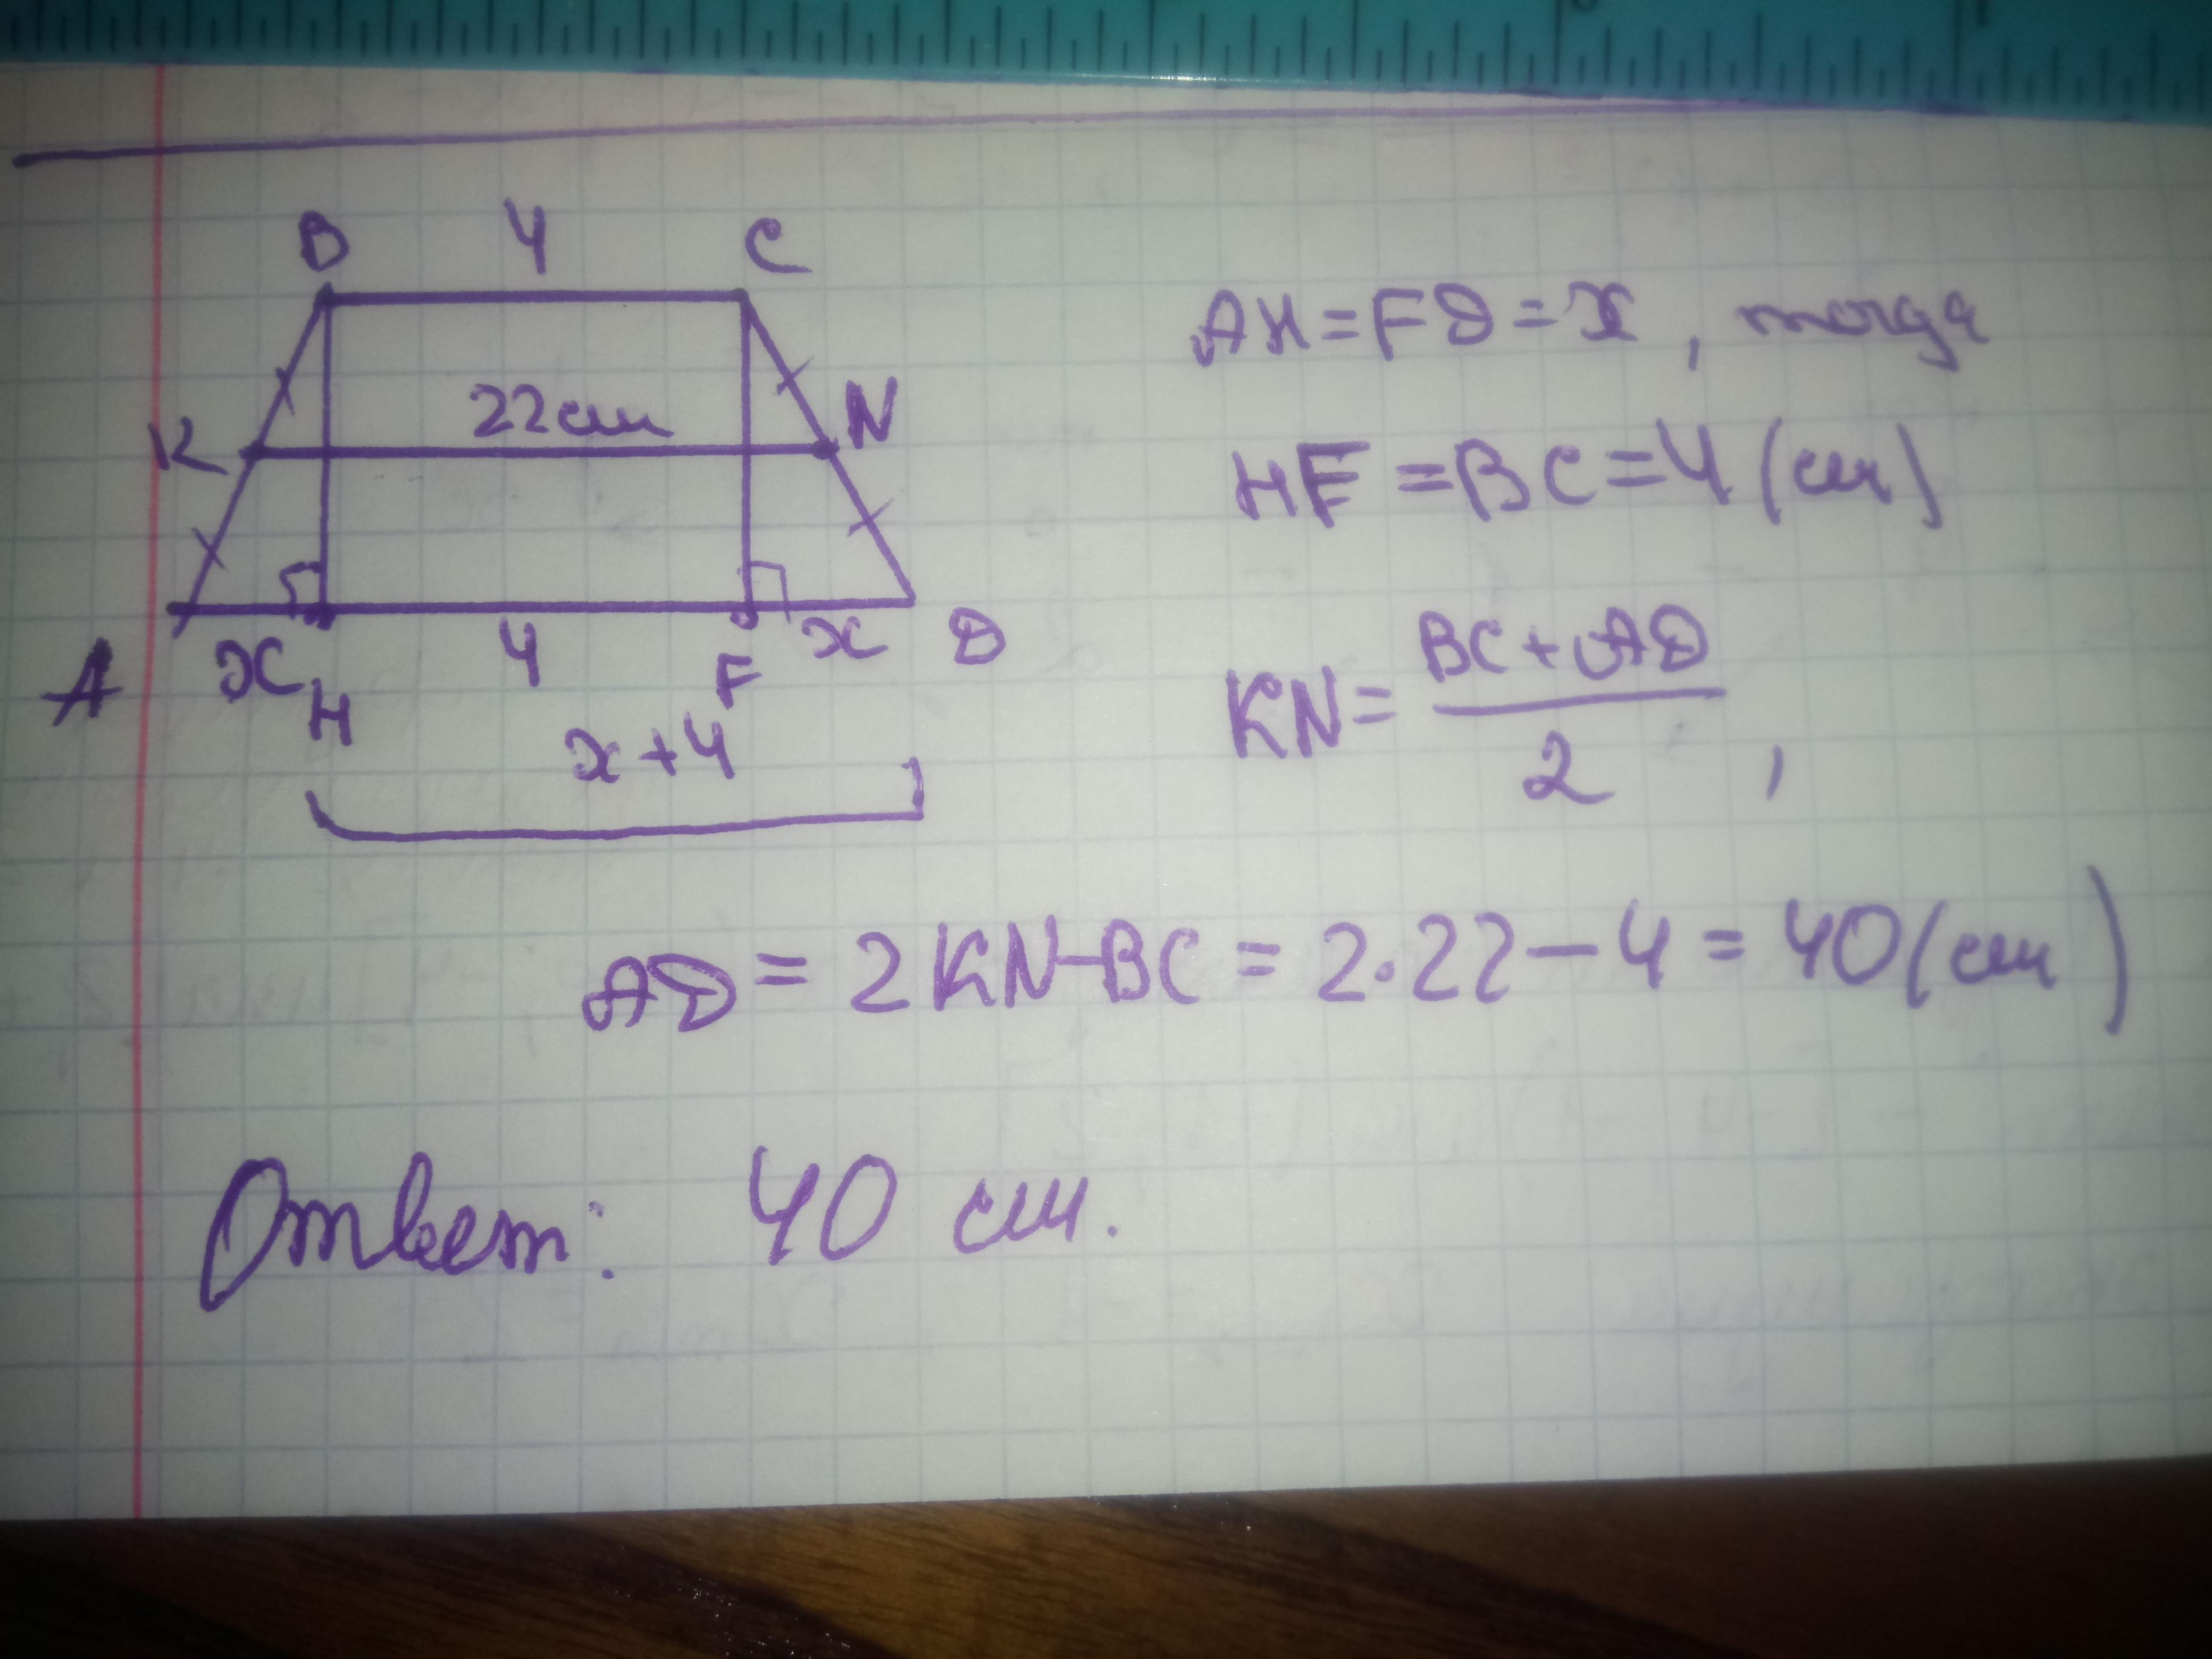 B 4 C
22 см
K N
A x H 4 F x D
x+4
AH=FD=x, тогда
HF=BC=4 (см)
KN=BC+AD/2,
AD = 2KN-BC = 2·22-4 = 40(см)
Ответ: 40 см.